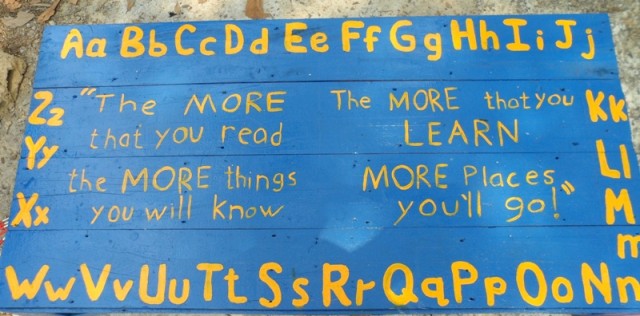 Aa Bb Cc Dd Ee Ff Gg Hh Ii Jj
Kk
Ll
M
m
Nn Oo Pp Qq Rr Ss Tt Uu Vv Ww
Xx
Yy
Zz
"The MORE
that you read
the MORE things
you will know
The MORE that you
LEARN
MORE Places
you'll go!"